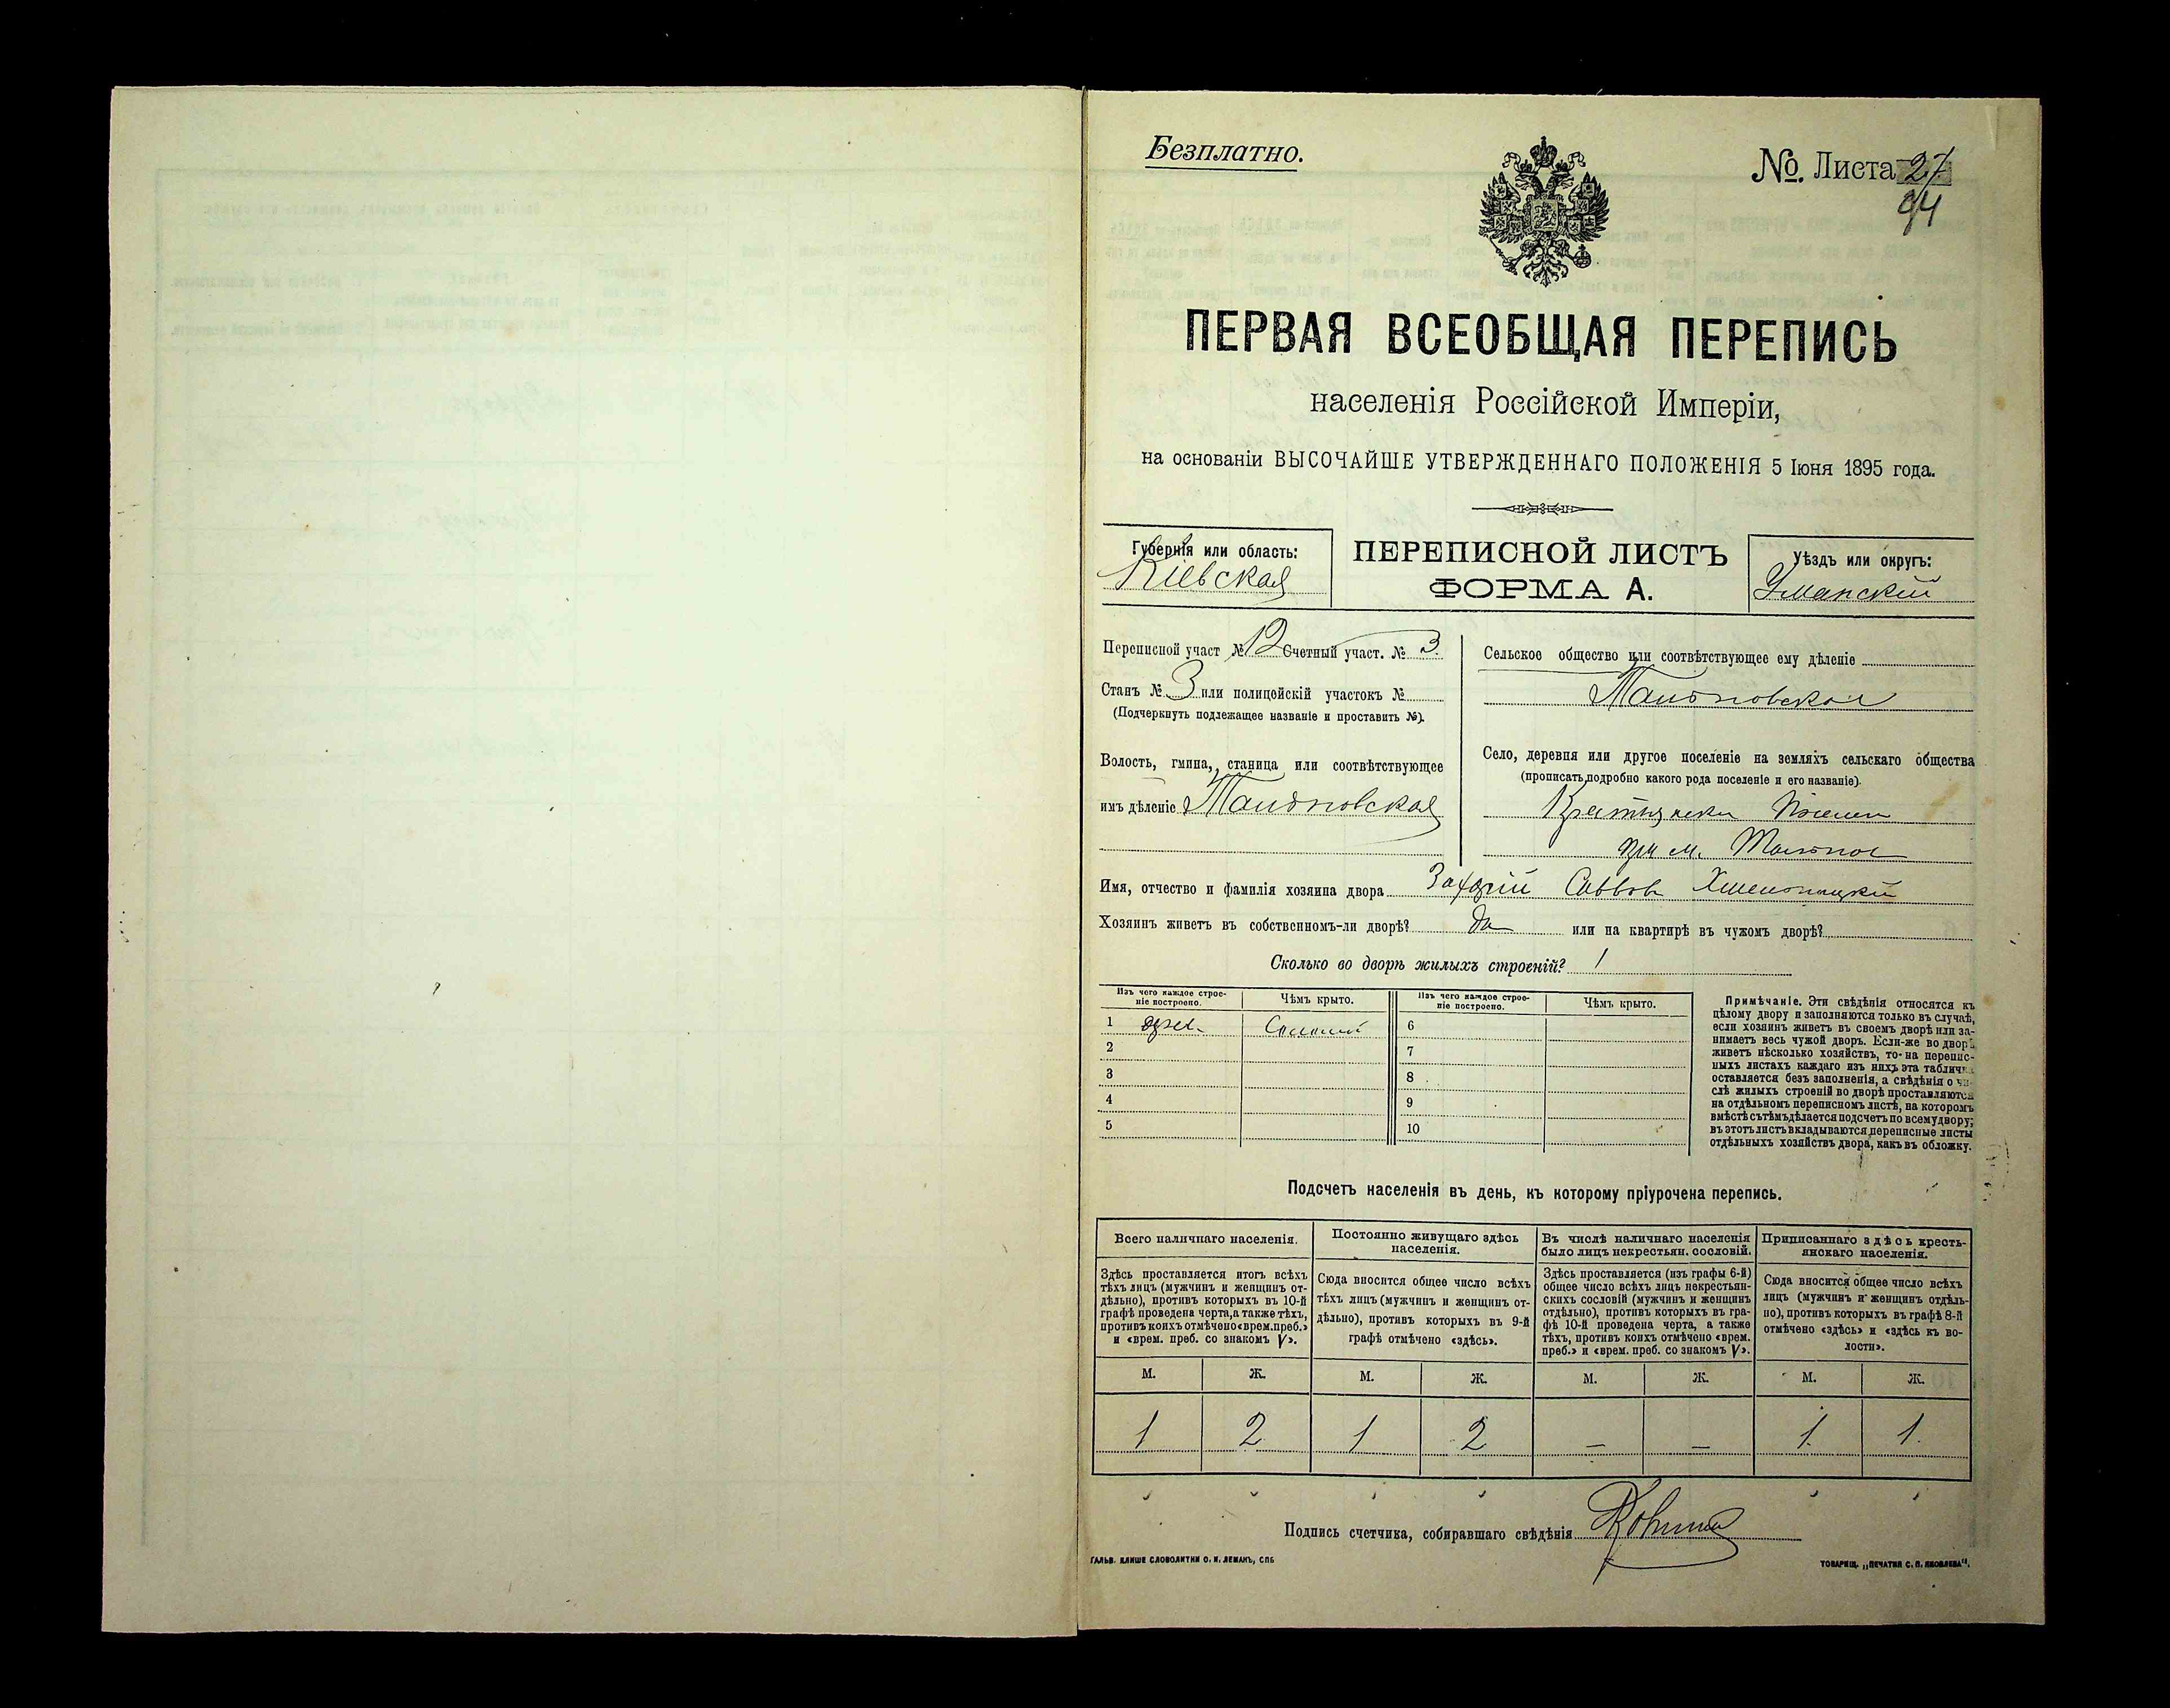 Безплатно.
№. Листа 27
94
ПЕРВАЯ ВСЕОБЩАЯ ПЕРЕПИСЬ
населенія Россійской Имперіи,
на основаніи ВЫСОЧАЙШЕ УТВЕРЖДЕННАГО ПОЛОЖЕНІЯ 5 Іюня 1895 года.
Губернія или область:
Кіевская
ПЕРЕПИСНОЙ ЛИСТЪ
ФОРМА А.
Уѣздъ или округъ:
Уманскій
Переписной участ № 12 Счетный участ. № 3.
Станъ № 3 или полицейскій участокъ №
(Подчеркнуть подлежащее названіе и проставить №).
Волость, гмина, станица или соотвѣтствующее
имъ дѣленіе Тальновская
Сельское общество или соотвѣтствующее ему дѣленіе
Тальновское
Село, деревня или другое поселеніе на земляхъ сельскаго общества
(прописать подробно какого рода поселеніе и его названіе).
при м. Тальное
Имя, отчество и фамилія хозяина двора Захарій Саввовъ
Хозяинъ живетъ въ собственномъ-ли дворѣ? да или на квартирѣ въ чужомъ дворѣ?
Сколько во дворѣ жилыхъ строеній? 1
Изъ чего каждое строе-
ніе построено.
Чѣмъ крыто.
Изъ чего каждое строе-
ніе построено.
Чѣмъ крыто.
1 дерев. Соломой
2
3
4
5
6
7
8
9
10
Примѣчаніе. Эти свѣдѣнія относятся къ
цѣлому двору и заполняются только въ случаѣ,
если хозяинъ живетъ въ своемъ дворѣ или за-
нимаетъ весь чужой дворъ. Если-же во дворѣ
живетъ нѣсколько хозяйствъ, то на перепис-
ныхъ листахъ каждаго изъ нихъ эта табличка
оставляется безъ заполненія, а свѣдѣнія о чи-
слѣ жилыхъ строеній во дворѣ проставляются
на отдѣльномъ переписномъ листѣ, на которомъ
вмѣстѣ съ тѣмъ дѣлается подсчетъ по всему двору;
въ этотъ листъ вкладываются переписные листы
отдѣльныхъ хозяйствъ двора, какъ въ обложку.
Подсчетъ населенія въ день, къ которому пріурочена перепись.
Всего наличнаго населенія.
Здѣсь проставляется итогъ всѣхъ
тѣхъ лицъ (мужчинъ и женщинъ от-
дѣльно), противъ которыхъ въ 10-й
графѣ проведена черта, а также тѣхъ,
противъ коихъ отмѣчено «врем. преб.»
и «врем. преб. со знакомъ V».
Постоянно живущаго здѣсь
населенія.
Сюда вносится общее число всѣхъ
тѣхъ лицъ (мужчинъ и женщинъ от-
дѣльно), противъ которыхъ въ 9-й
графѣ отмѣчено «здѣсь».
Въ числѣ наличнаго населенія
было лицъ некрестьян. сословій.
Здѣсь проставляется (изъ графы 6-й)
общее число всѣхъ лицъ некрестьян-
скихъ сословій (мужчинъ и женщинъ
отдѣльно), противъ которыхъ въ гра-
фѣ 10-й проведена черта, а также
тѣхъ, противъ коихъ отмѣчено «врем.
преб.» и «врем. преб. со знакомъ V».
Приписаннаго здѣсь кресть-
янскаго населенія.
Сюда вносится общее число всѣхъ
лицъ (мужчинъ и женщинъ отдѣль-
но), противъ которыхъ въ графѣ 8-й
отмѣчено «здѣсь» и «здѣсь къ во-
лости».
М. Ж. М. Ж. М. Ж. М. Ж.
1 2 1 2 — — 1. 1.
Подпись счетчика, собиравшаго свѣдѣнія
ГАЛЬВ. КЛИШЕ СЛОВОЛИТНИ О. И. ЛЕМАНЪ, СПБ
ТОВАРИЩ. „ПЕЧАТНЯ С. П. ЯКОВЛЕВА".